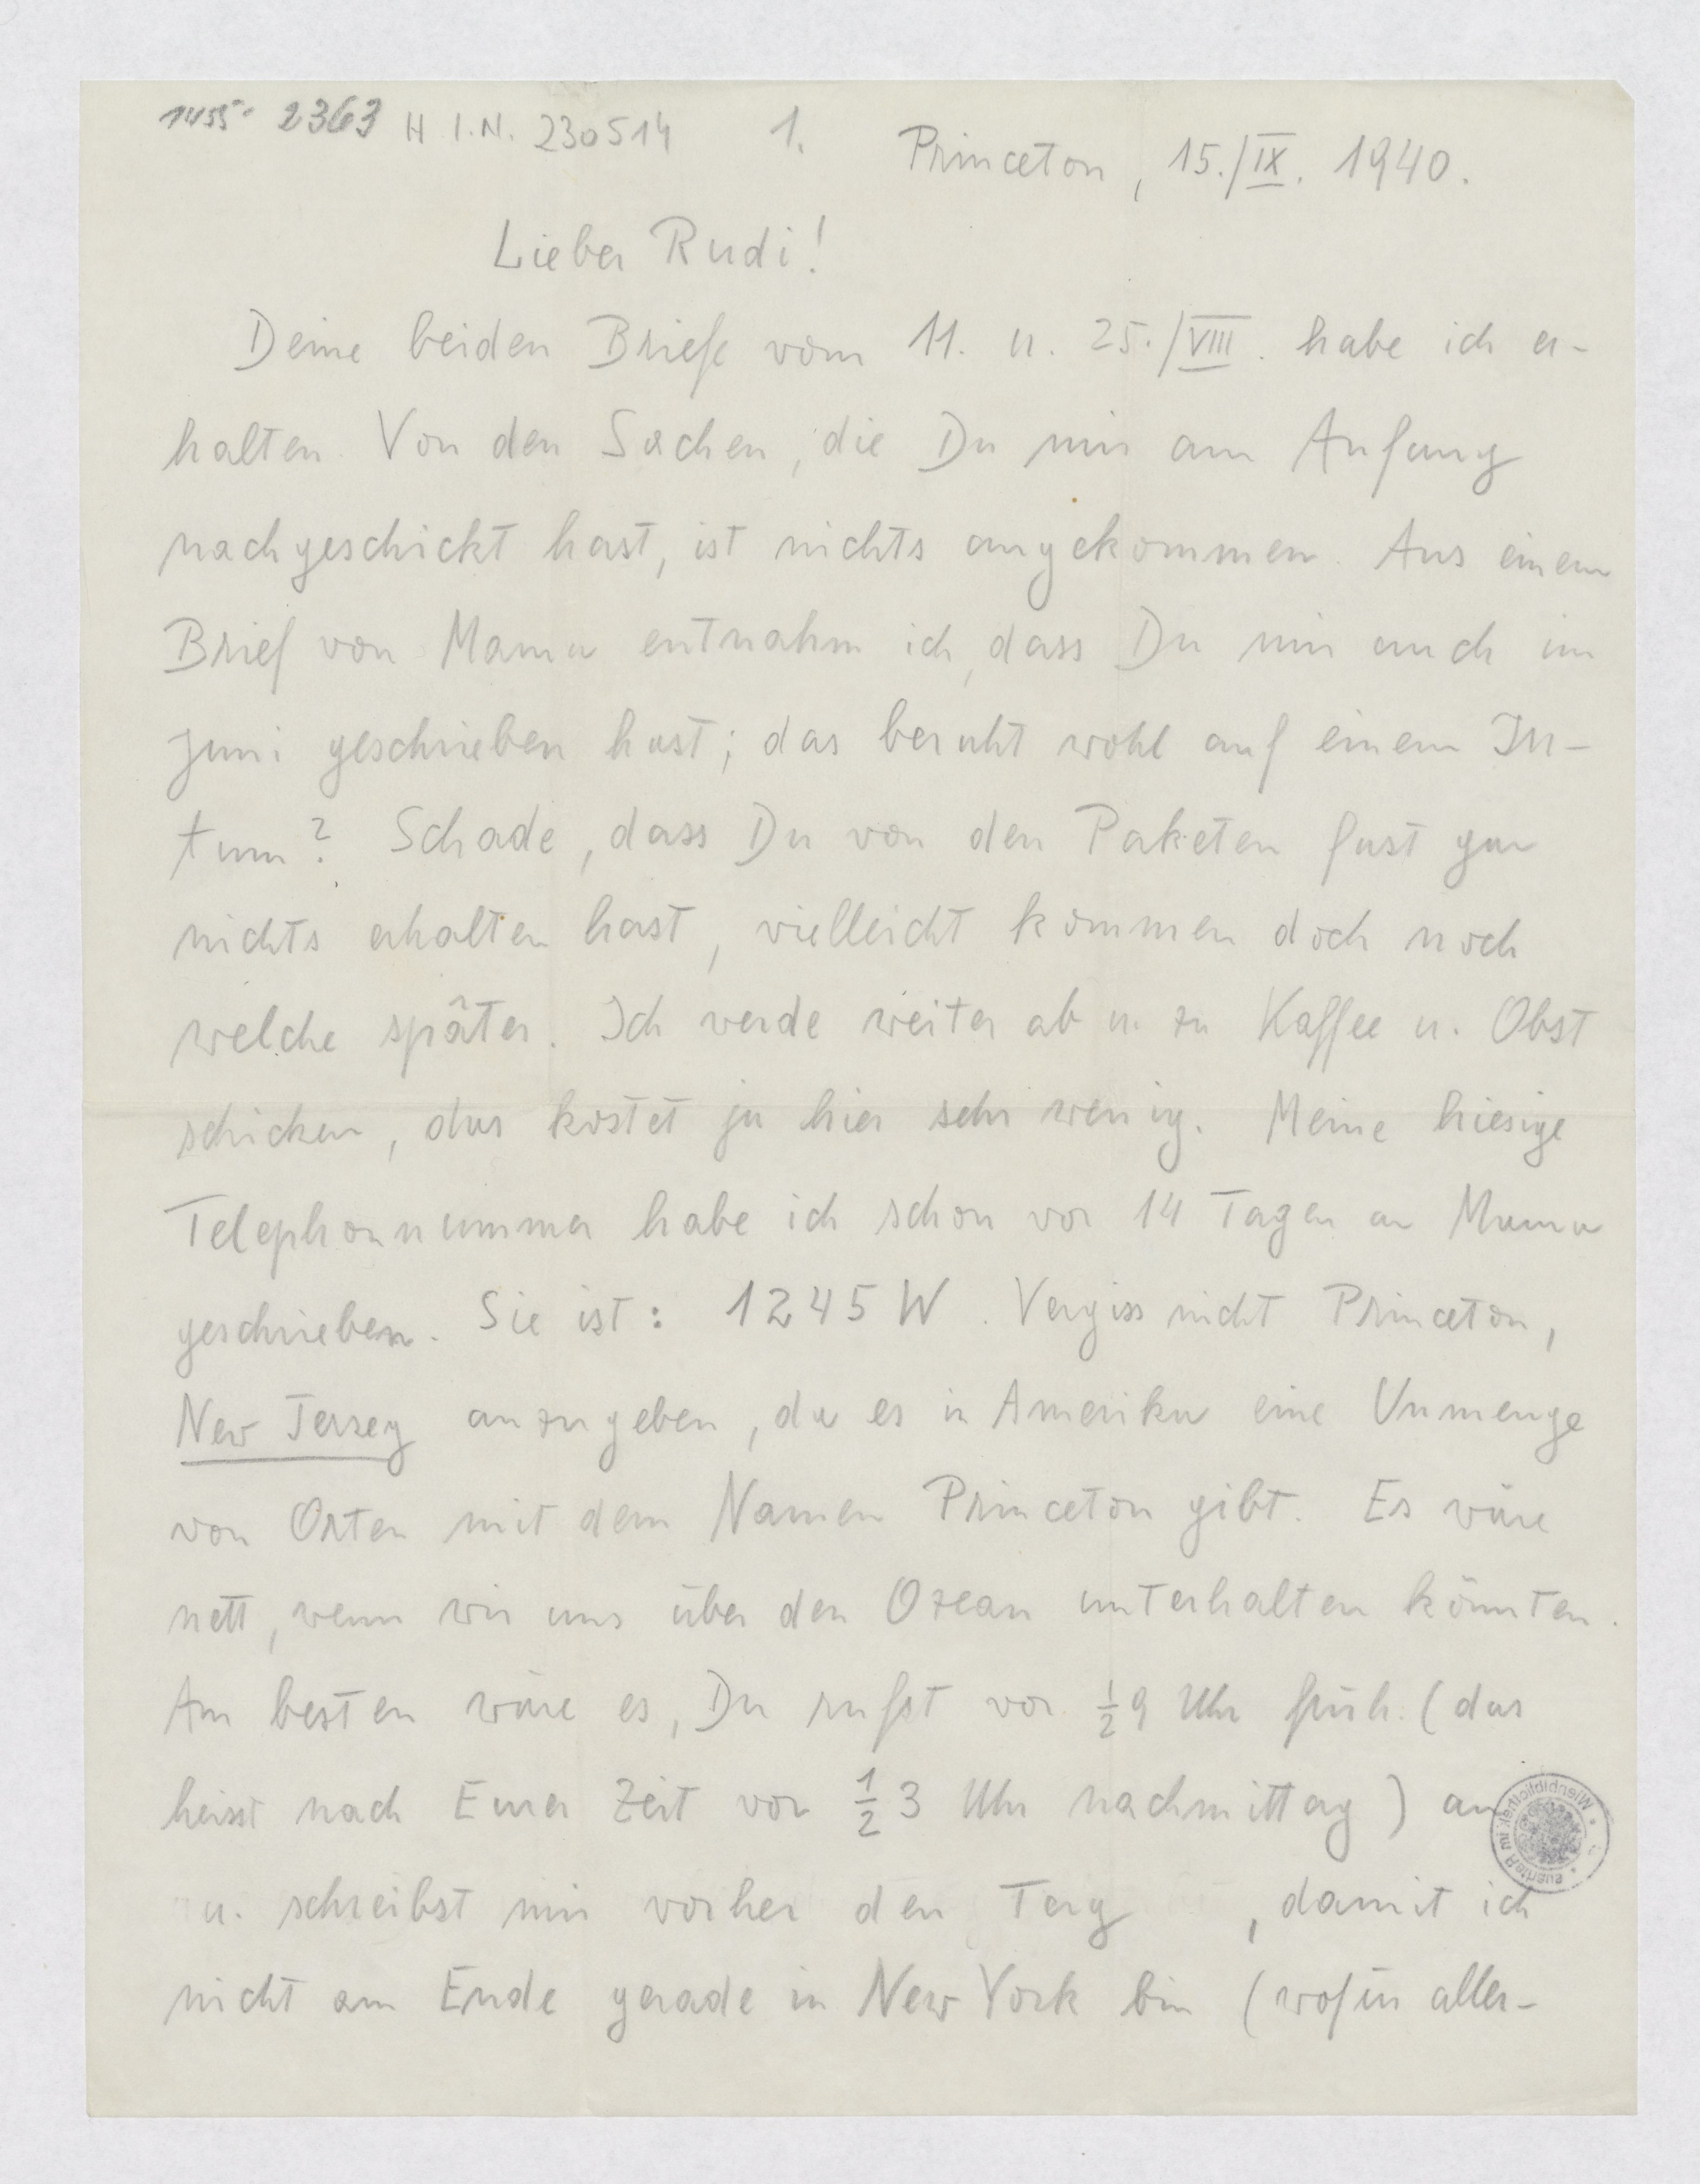 1455- 2363 H I.N. 230514 1.
Princeton, 15./IX. 1940.
Lieber Rudi!
Deine beiden Briefe vom 11. u. 25./VIII. habe ich er-
halten. Von den Sachen, die Du mir am Anfang
nachgeschickt hast, ist nichts angekommen. Aus einem
Brief von Mama entnahm ich, dass Du mir auch im
Juni geschrieben hast; das beruht wohl auf einem Irr-
tum? Schade, dass Du von den Paketen fast gar
nichts erhalten hast, vielleicht kommen doch noch
welche später. Ich werde weiter ab u. zu Kaffee u. Obst
schicken, das kostet ja hier sehr wenig. Meine hiesige
Telephonnummer habe ich schon vor 14 Tagen an Mama
geschrieben. Sie ist: 1245 W. Vergiss nicht Princeton,
New Jersey anzugeben, da es in Amerika eine Unmenge
von Orten mit dem Namen Princeton gibt. Es wäre
nett, wenn wir uns über den Ozean unterhalten könnten.
Am besten wäre es, Du rufst vor ½9 Uhr früh (das
heisst nach Eurer Zeit vor ½3 Uhr nachmittag) an
u. schreibst mir vorher den Tag, damit ich
nicht am Ende gerade in New York bin (wofür aller-
Wienbibliothek im Rathaus